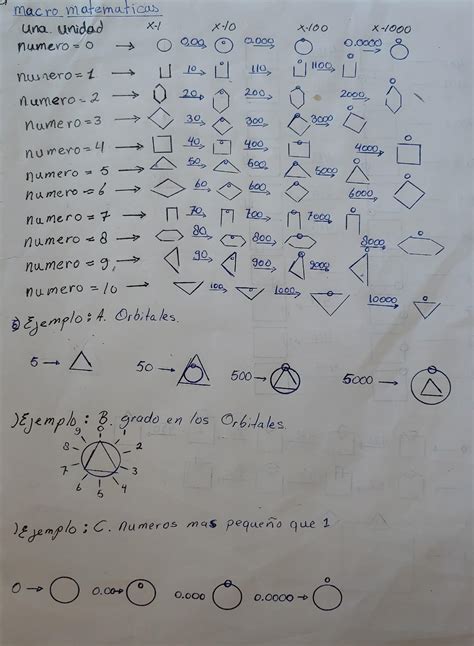 macro matematicas
una unidad x-1 x-10 x-100 x-1000
numero = 0 → 0,00 → 0.00 → 0.0000 →
numero = 1 → 10 → 110 → 1100 →
numero = 2 → 20 → 200 → 2000 →
numero = 3 → 30 → 300 → 3000 →
numero = 4 → 40 → 400 → 4000 →
numero = 5 → 50 → 500 → 5000 →
numero = 6 → 60 → 600 → 6000 →
numero = 7 → 70 → 700 → 7000 →
numero = 8 → 80 → 800 → 8000 →
numero = 9, → 90 → 900 → 9000 →
numero = 10 → 100 → 1000 → 10000 →
Ejemplo: A. Orbitales.
5 → 50 → 500 → 5000 →
)Ejemplo: B. grado en los Orbitales
9 0 1
8 2
7 3
6 5 4
)Ejemplo: C. numeros mas pequeño que 1
0 → 0.00 → 0.000 0.0000 →